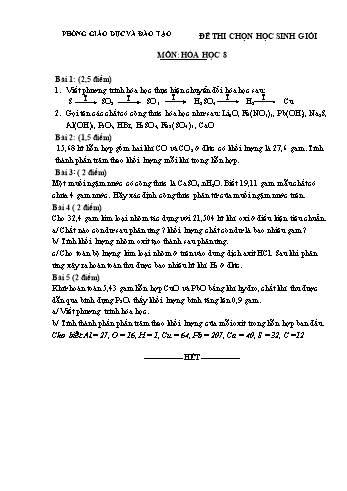 PHÒNG GIÁO DỤC VÀ ĐÀO TẠO
ĐỀ THI CHỌN HỌC SINH GIỎI
MÔN: HÓA HỌC 8
Bài 1: (2,5 điểm)
1. Viết phương trình hóa học thực hiện chuyển đổi hóa học sau:
S → SO2 → SO3 → H2SO4 → H2 → Cu
2. Gọi tên các chất có công thức hóa học như sau: Li2O, Fe(NO3)3, Pb(OH)2, Na2S,
Al(OH)3, P2O5, HBr, H2SO4, Fe2(SO4)3, CaO
Bài 2: (1,5 điểm)
15,68 lít hỗn hợp gồm hai khí CO và CO2 ở đktc có khối lượng là 27,6 gam. Tính
thành phần trăm theo khối lượng mỗi khí trong hỗn hợp.
Bài 3: (2 điểm)
Một muối ngậm nước có công thức là CaSO4.nH2O. Biết 19,11 gam mẫu chất có
chứa 4 gam nước. Hãy xác định công thức phân tử của muối ngậm nước trên.
Bài 4 (2 điểm)
Cho 32,4 gam kim loại nhôm tác dụng với 21,504 lít khí oxi ở điều kiện tiêu chuẩn.
a/ Chất nào còn dư sau phản ứng? khối lượng chất còn dư là bao nhiêu gam?
b/ Tính khối lượng nhôm oxit tạo thành sau phản ứng.
c/ Cho toàn bộ lượng kim loại nhôm ở trên vào dung dịch axit HCl. Sau khi phản
ứng xảy ra hoàn toàn thu được bao nhiêu lít khí H2 ở đktc.
Bài 5 (2 điểm)
Khử hoàn toàn 5,43 gam hỗn hợp CuO và PbO bằng khí hyđro, chất khí thu được
dẫn qua bình đựng P2O5 thấy khối lượng bình tăng lên 0,9 gam.
a/ Viết phương trình hóa học.
b/ Tính thành phần phần trăm theo khối lượng của mỗi oxit trong hỗn hợp ban đầu.
Cho biết: Al = 27, O = 16, H = 1, Cu = 64, Pb = 207, Ca = 40, S = 32, C =12
HẾT